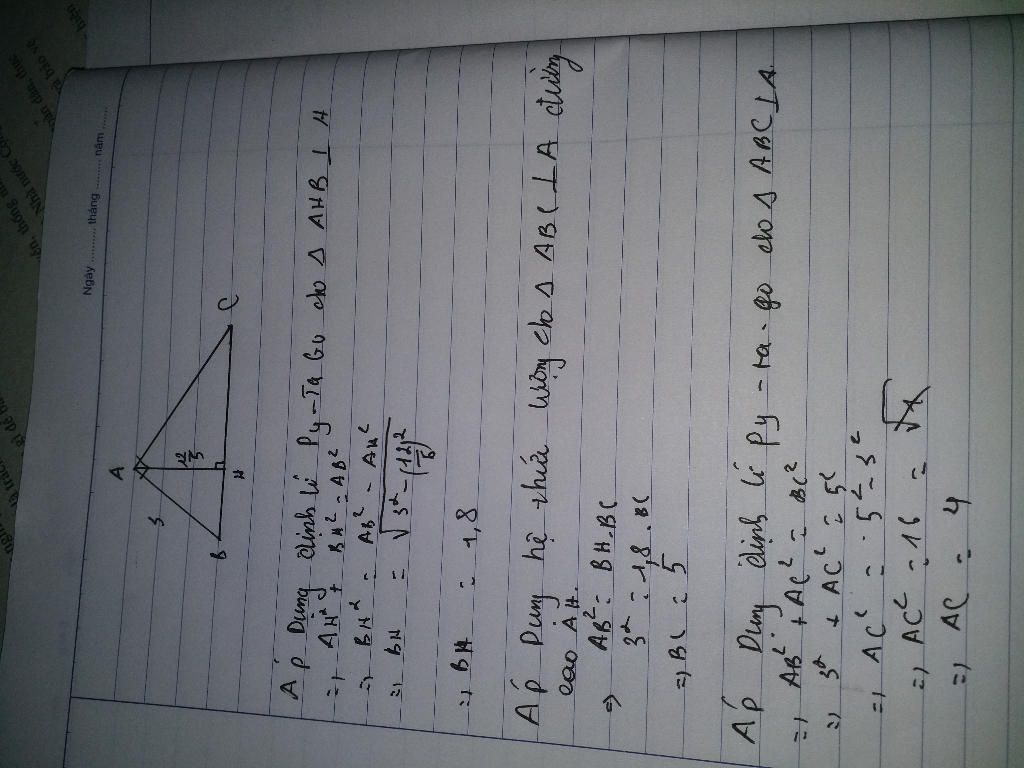 Ngày .......... tháng .......... năm ......
A
3
12/5
B
H
C
Áp Dụng định lí Py-Ta Go cho Δ AHB ⊥ H
=> AH² + BH² = AB²
=> BH² = AB² - AH²
=> BH = √3² - (12/5)²
=> BH = 1,8
Áp Dụng hệ thức lượng cho Δ ABC ⊥ A đường
cao AH.
=> AB² = BH.BC
3² = 1,8.BC
=> BC = 5
Áp Dụng định lí Py-ta-go cho Δ ABC ⊥ A
=> AB² + AC² = BC²
=> 3² + AC² = 5²
=> AC² = 5² - 3²
=> AC² = 16 =
=> AC = 4